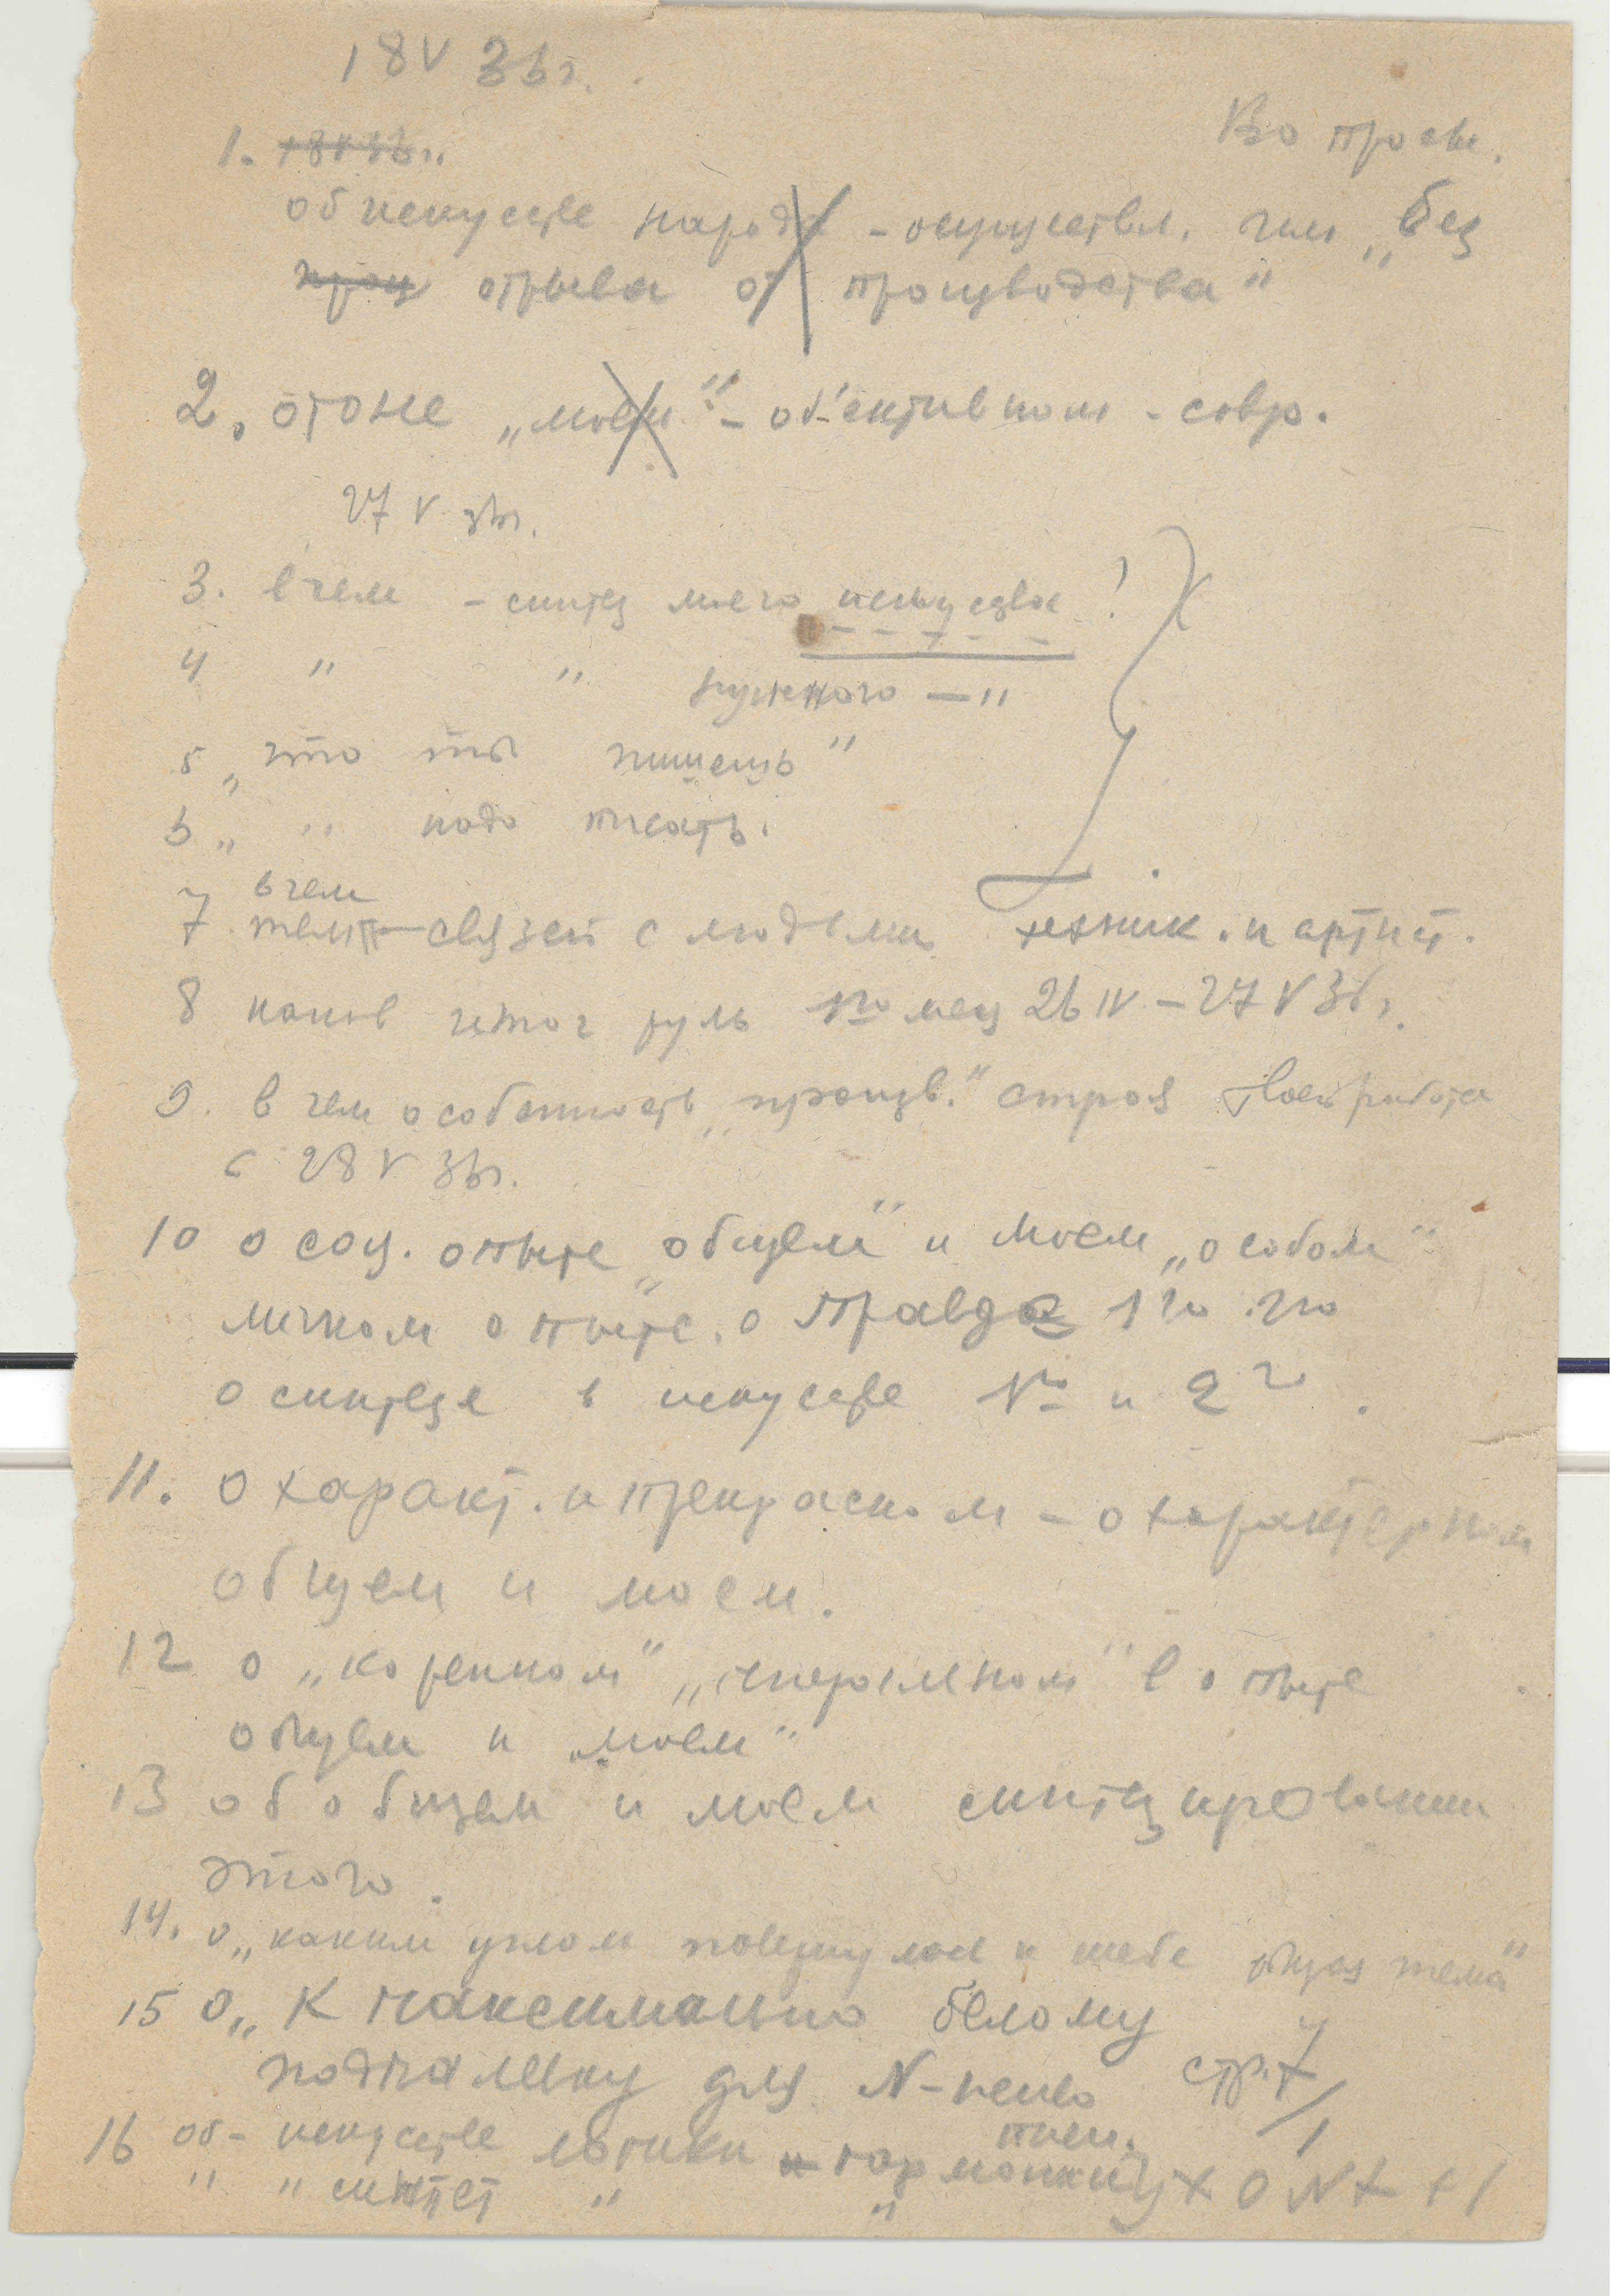 18 V 36 г.
Вопросы.
1. 18 V 36 г.
об искусстве народа - осуществл. им „без
отрыва от производства"
2. о тоне „моем" - об'ективном - совр.
27 V 36 г.
3. в чем - синтез моего искусства ?
4 " " нужного — "
5 „что ты пишешь"
6 „ " надо писать.
7 в чем
связей с людьми техник. и артист.
8 каков итог 1го мес 26 IV – 27 V 36 г.
9. в чем особенность „произв." строя твоей работы
с 28 V 36 г.
10 о соц. опыте „общем" и моем „особом"
личном опыте. о правде 1го
о синтезе в искусстве 1го и 2го.
11. о характ. и прекрасном – о характерном
общем и моем.
12 о „коренном" в опыте
общем и „моем"
13 об общем и моем синтезировании
этого.
14. о „каким углом повернулась к тебе общая тема"
15 о „к максимально белому
подмалевку для N-
стр. 7/1
16 об - искусстве логики и гармонии
" " синтет " "